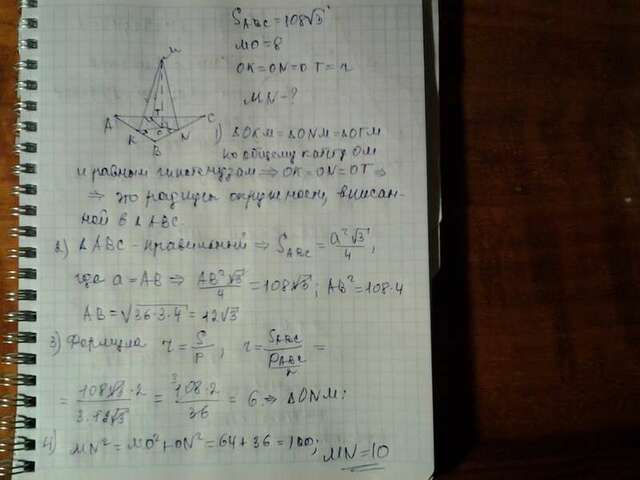 S_ABC = 108√3
MO = 8
OK = ON = OT = r
MN - ?
M
A
K
O
N
C
B
T
1) ΔOKM = ΔONM = ΔOTM
по общему катету OM
и равным гипотенузам ⇒ OK = ON = OT ⇒
⇒ это радиусы окружности, вписан-
ной в ΔABC.
2) ΔABC - правильный ⇒ S_ABC = a²√3/4 ;
где a = AB ⇒ AB²√3/4 = 108√3 ; AB² = 108·4
AB = √36·3·4 = 12√3
3) Формула r = S/p ; r = S_ABC / (P_ABC/2) =
= 108√3·2 / 3·12√3 = 108·2 / 36 = 6 ⇒ ΔONM:
4) MN² = MO² + ON² = 64 + 36 = 100; MN = 10